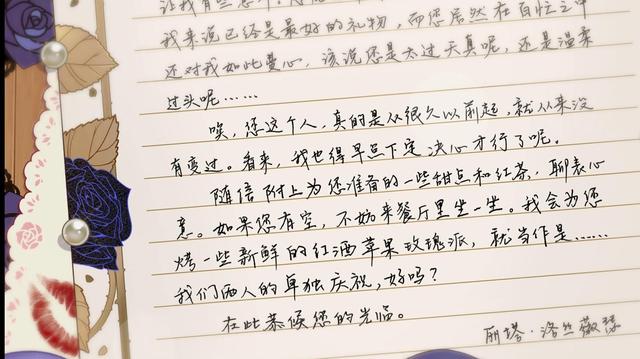 我来说已经是最好的礼物，而您居然在百忙之中
还对我如此费心，该说您是太过天真呢，还是温柔
过头呢……
唉，您这个人，真的是从很久以前起，就从来没
有变过。看来，我也得早点下定决心才行了呢。
随信附上为您准备的一些甜点和红茶，聊表心
意。如果您有空，不妨来餐厅里坐一坐。我会为您
烤一些新鲜的红酒苹果玫瑰派，就当作是……
我们两人的单独庆祝，好吗？
在此恭候您的光临。
丽塔·洛丝薇瑟